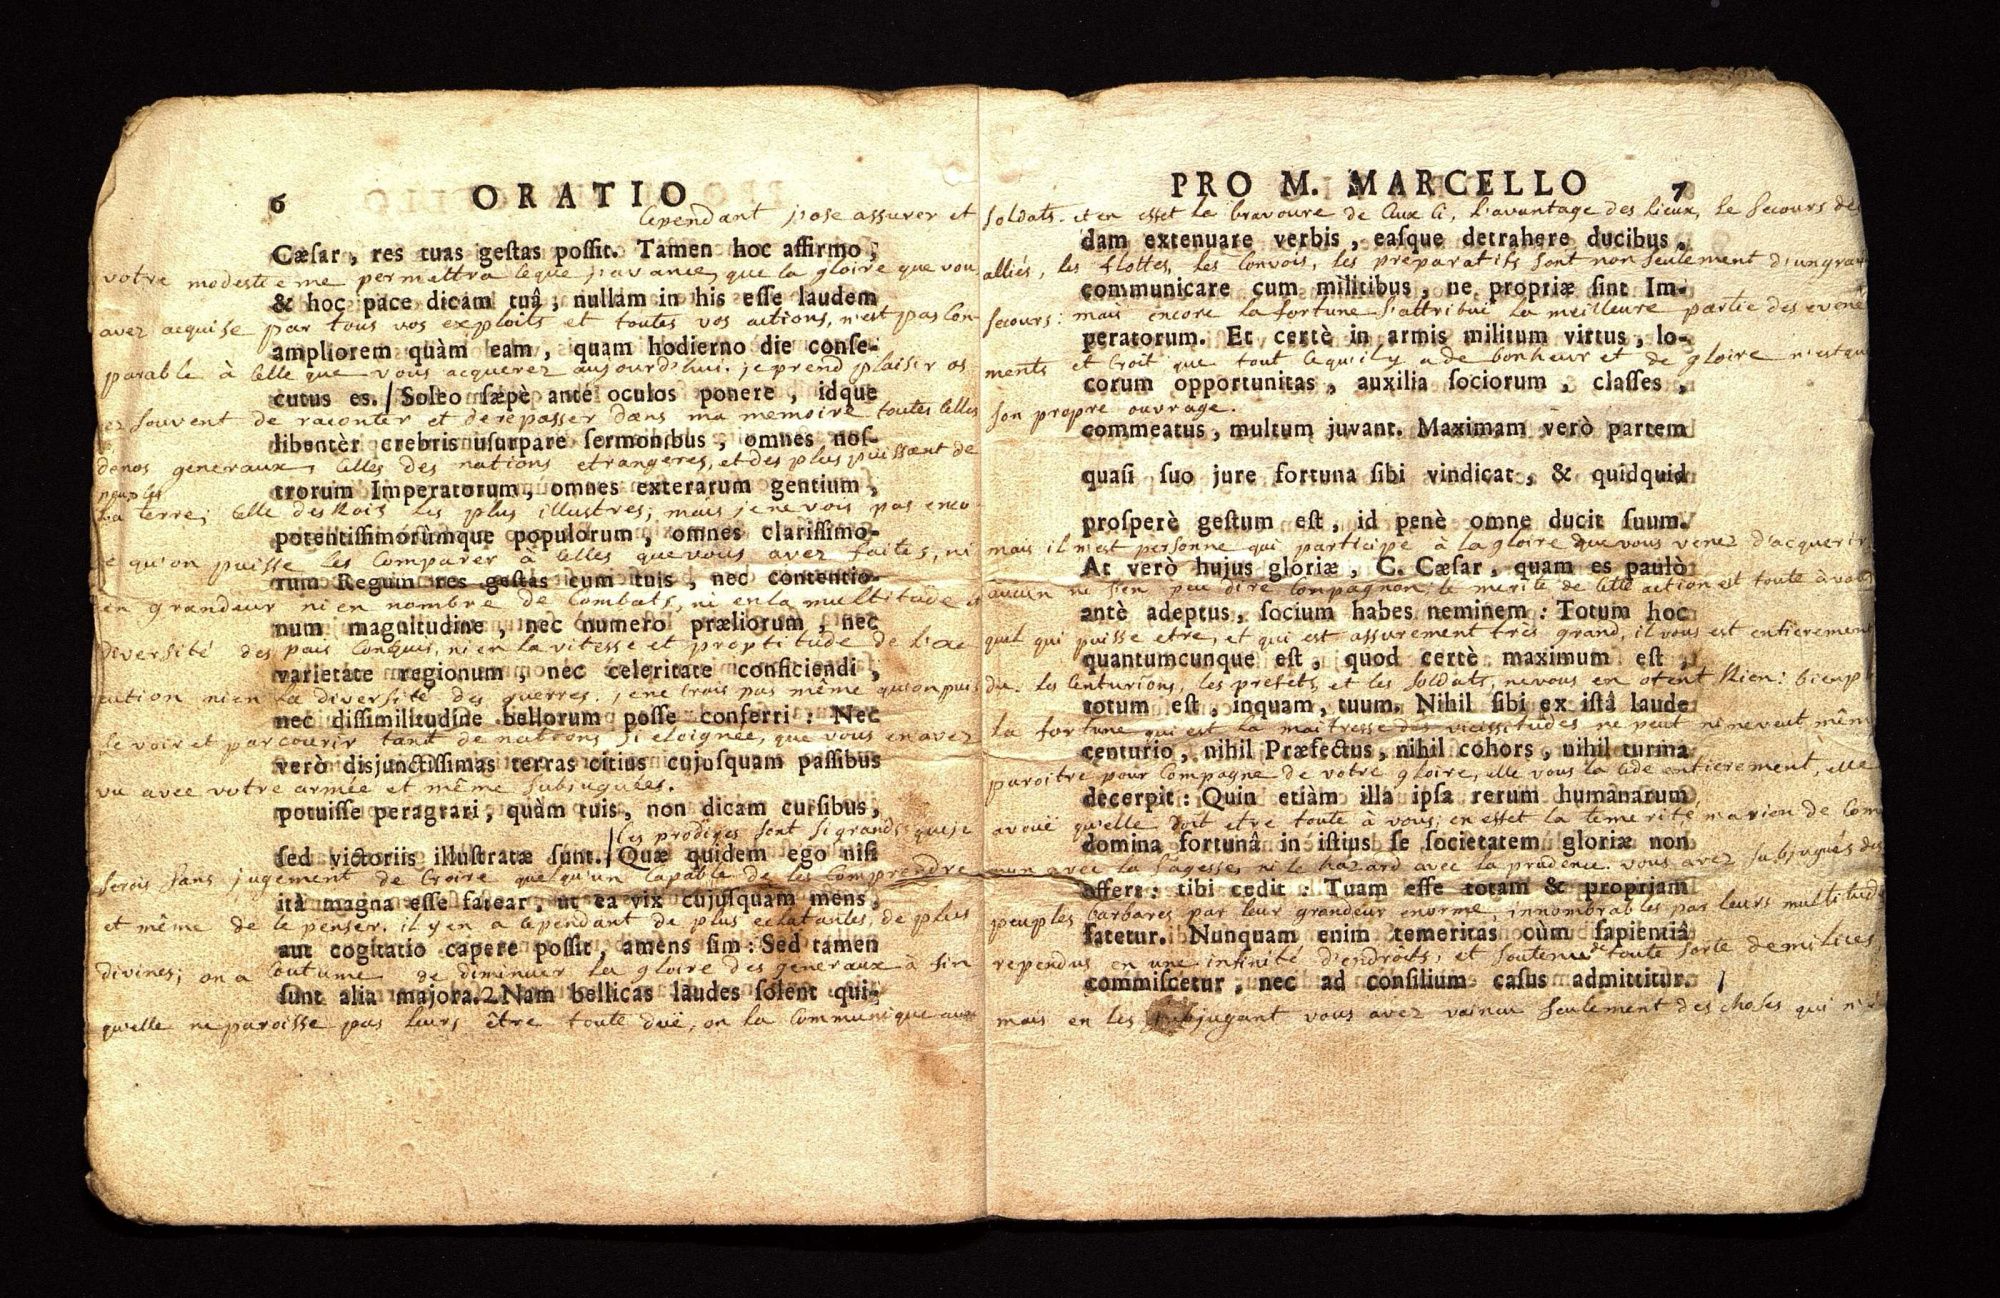 6 ORATIO
Cependant j'ose assurer et
Cæſar, res tuas geſtas poſſit. Tamen hoc affirmo,
votre modestie me permettra le que j'avance, que la gloire que vou
& hoc pace dicam tuâ, nullam in his eſſe laudem
avez acquise par tous vos exploits et toutes vos actions, n'est pas Com
ampliorem quàm eam, quam hodierno die conſe-
parable à Celle que vous acquerez aujourd'hui. je prend plaisir
cutus es. / Soleo ſæpè antè oculos ponere, idque
souvent de raconter et de repasser dans ma memoire toutes Celles
libentèr crebris uſurpare ſermonibus, omnes noſ-
de nos generaux, Celles des nations etrangeres, et des plus puissant de
trorum Imperatorum, omnes exterarum gentium,
peuples
la terre, Celle des Rois les plus illustres, mais je ne vois pas enco
potentiſſimorùmque populorum, omnes clariſſimo-
qu'on puisse les Comparer à Celles que vous avez faites, ni
rum Regum res geſtas cum tuis, nec contentio-
en grandeur ni en nombre de Combats, ni en la multitude
num magnitudine, nec numero præliorum, nec
diversité des pais Conquis, ni en la vitesse et proptitude de l'ex
varietate regionum, nec celeritate conficiendi,
cution ni en la diversité des guerres. je ne Crois pas même qu'on puis
nec diſſimilitudine bellorum poſſe conferri: Nec
se voir et parcourir tant de nations si eloignée, que vous en avez
verò disjunctiſſimas terras citius cujuſquam paſſibus
vu avec votre armée et même Subjuguées.
potuiſſe peragrari, quàm tuis, non dicam curſibus,
Ces prodiges sont si grands que je
ſed victoriis illuſtratæ ſunt. / Quæ quidem ego niſi
serois sans jugement de Croire quelqu'un Capable de les Comprendre
ità magna eſſe fatear, ut ea vix cujuſquam mens,
et même de le penser. il y en a Cependant de plus eclatantes, de plus
aut cogitatio capere poſſit, amens ſim: Sed tamen
divines; on a Coutume de diminuer la gloire des generaux à fin
ſunt alia majora. 2 Nam bellicas laudes ſolent qui-
qu'elle ne paroisse pas leurs être toute duë, on la Communique aux
PRO M. MARCELLO 7
Soldats. et en effet la bravoure de Ceux Ci, l'avantage des Lieux, le Secours de
dam extenuare verbis, eaſque detrahere ducibus,
alliés, les flottes, les Convois, les préparatifs sont non seulement d'un gra
communicare cum militibus, ne propriæ ſint Im-
secours: mais encore la fortune s'attribuë la meilleure partie des evene
peratorum. Et certè in armis militum virtus, lo-
ments et Croit que tout Ce qu'il y a de bonheur et de gloire n'est qu
corum opportunitas, auxilia ſociorum, claſſes,
son propre ouvrage.
commeatus, multum juvant. Maximam verò partem
quaſi ſuo jure fortuna ſibi vindicat, & quidquid
proſperè geſtum eſt, id penè omne ducit ſuum.
mais il n'est personne qui participe à la gloire que vous venez d'acquerir
At verò hujus gloriæ, C. Cæſar, quam es paulò
aucun ne s'en peu dire Compagnon, le merite de Cette action est toute à vous
antè adeptus, ſocium habes neminem: Totum hoc
quel qui puisse etre, et qui est assurement tres grand, il vous est entieremen
quantumcunque eſt, quod certè maximum eſt,
du. les Centurions, les prefets et les soldats, ne vous en otent Rien: bien p
totum eſt, inquam, tuum. Nihil ſibi ex iſtâ laude
la fortune qui est la maitresse des vicissitudes ne peut ni ne veut mêm
centurio, nihil Præfectus, nihil cohors, nihil turma
paroitre pour Compagne de votre gloire, elle vous la Cede entierement, elle
decerpit: Quin etiàm illa ipſa rerum humanarum
avouë qu'elle doit etre toute à vous, en effet la temerité n'a rien de Com
domina fortunâ in iſtius ſe ſocietatem gloriæ non
mun avec la sagesse, ni le hazard avec la prudence. vous avez subjugués des
affert: tibi cedit: Tuam eſſe totam & propriam
peuples barbares par leur grandeur enorme, innombrables par leurs multitud
fatetur. Nunquam enim temeritas cùm ſapientiâ
rependus en une infinité d'endroits, et soutenu de toute sorte de milices,
commiſcetur, nec ad conſilium caſus admittitur. /
mais en les subjugant vous avez vaincu seulement des choses qui n'é